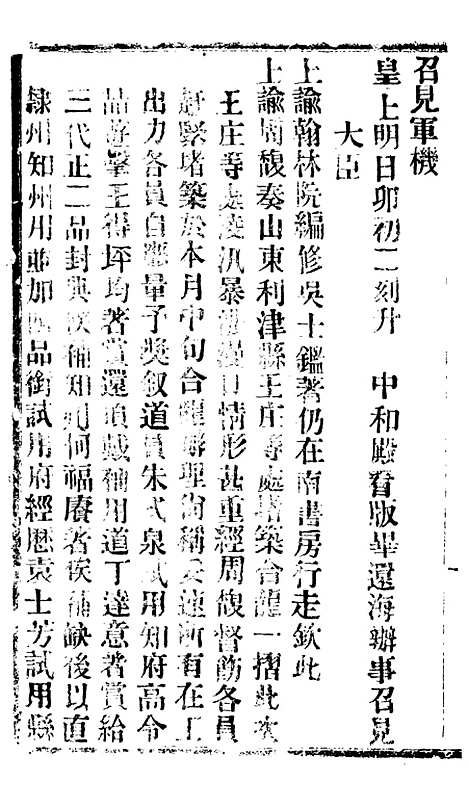 召見軍機
皇上明日卯初二刻升 中和殿看版畢還海辦事召見
大臣
上諭翰林院編修吳士鑑著仍在南書房行走欽此
上諭周馥奏山東利津縣王庄等處堵築合龍一摺此次
王庄等處淩汛暴漲漫口情形甚重經周馥督飭各員
趕緊堵築於本月中旬合龍辦理尚稱妥速所有在工
出力各員自應量予獎敘道員朱式泉試用知府高令
品遊擊王得坪均著賞還頂戴補用道丁達意著賞給
三代正二品封典候補知州何福賡著俟補缺後以直
隸州知州用並加四品銜試用府經歷袁士芳試用縣